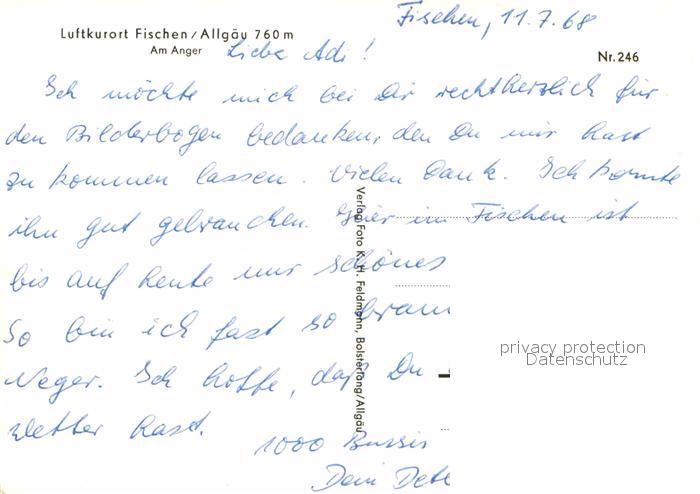 Luftkurort Fischen/Allgäu 760 m
Am Anger
Fischen, 11.7.68
Nr. 246
Liebe Adi!
Ich möchte mich bei Dir recht herzlich für
den Bilderbogen bedanken, den Du mir hast
zu kommen lassen. Vielen Dank. Ich konnte
ihn gut gebrauchen. Hier in Fischen ist
bis auf heute nur schönes
So bin ich fast so braun
Neger. Ich hoffe, daß Du
Wetter hast.
1000 Bussis
Dein Dete
Verlag Foto K. H. Feldmann, Bolsterlang/Allgäu
privacy protection
Datenschutz